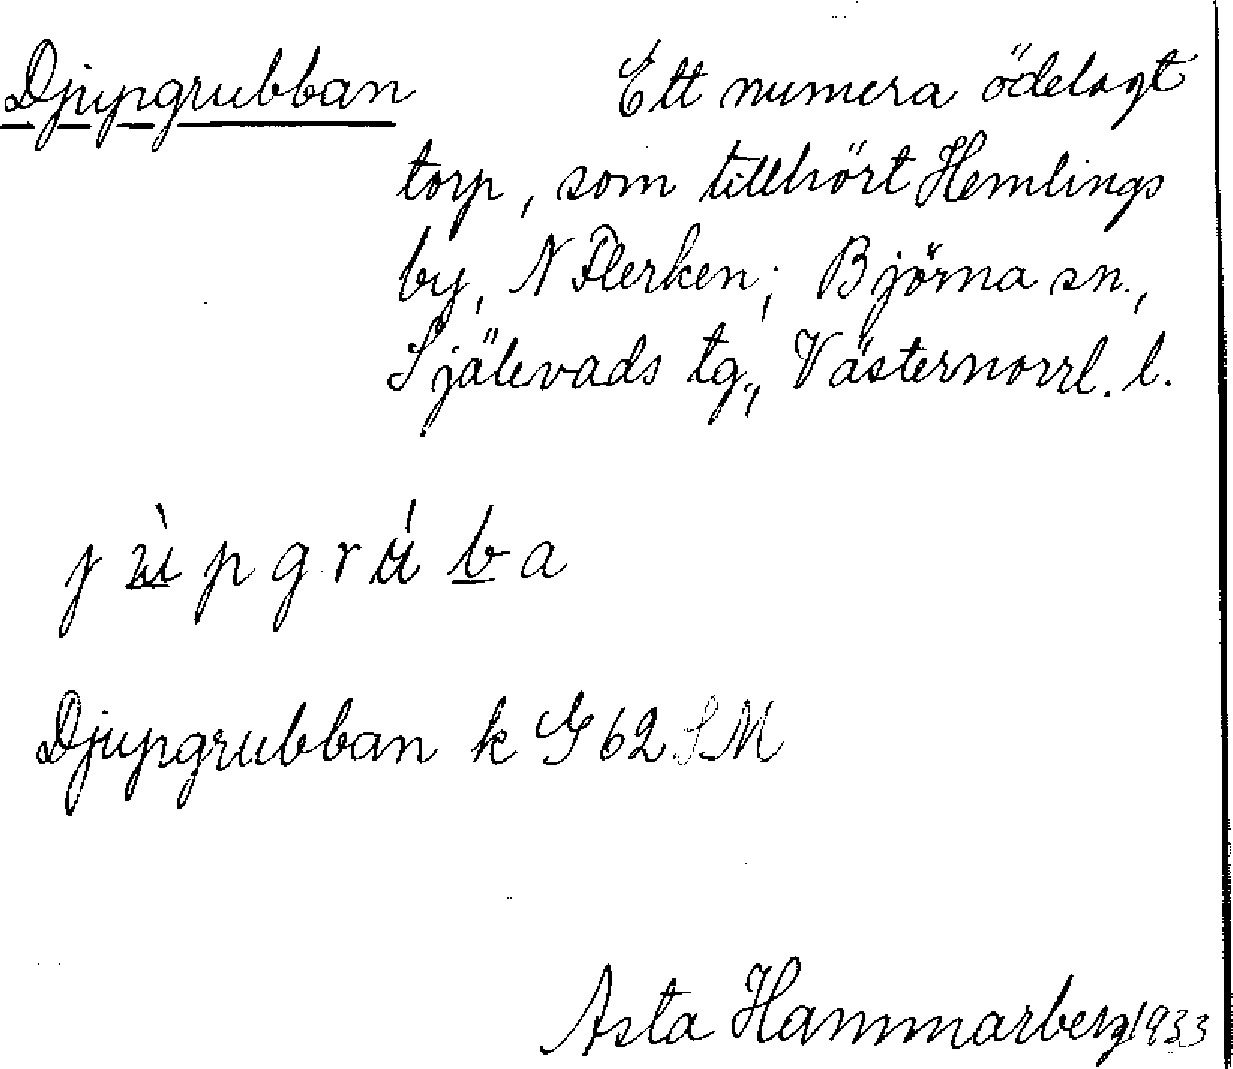 Djupgrubban Ett numera ödelagt
torp, som tillhört Hemlings
by, N Flerken; Björna sn.,
Själevads tg., Västernorrl. l.
j ù p g r ú b a
Djupgrubban k G 62 SM
Asta Hammarberg 1933